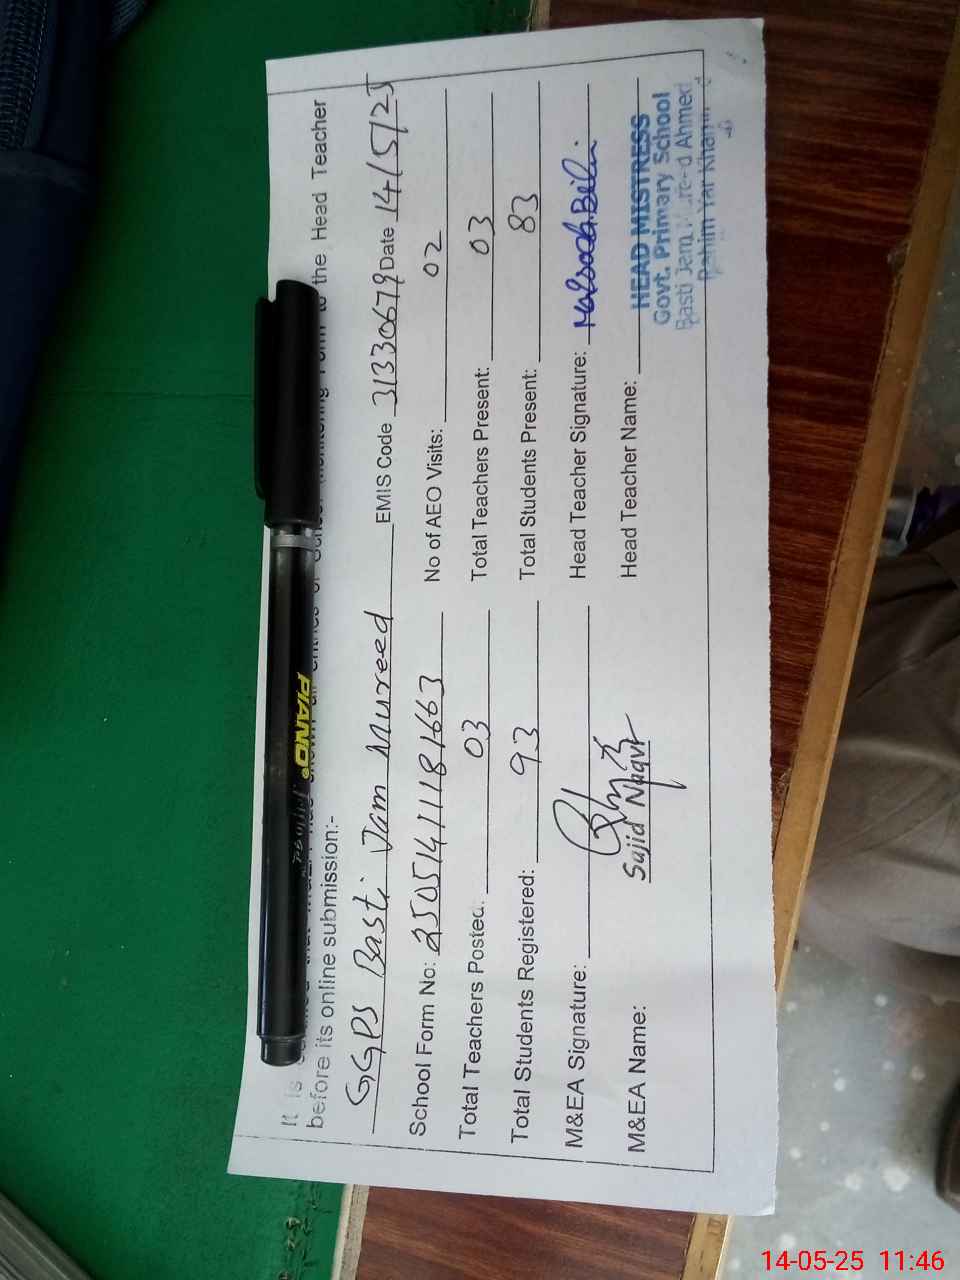 It is
the Head Teacher
before its online submission:-
GGPS Basti Jam Mureed EMIS Code 31330679 Date 14/5/25
School Form No: 250514111181663 No of AEO Visits: 02
Total Teachers Posted: 03 Total Teachers Present: 03
Total Students Registered: 93 Total Students Present: 83
M&EA Signature: Head Teacher Signature:
M&EA Name: Sajid Naqvi Head Teacher Name:
HEAD MISTRESS
Govt. Primary School
Basti Jam Mureed Ahmed
Rahim Yar Khan
PIANO
14-05-25 11:46